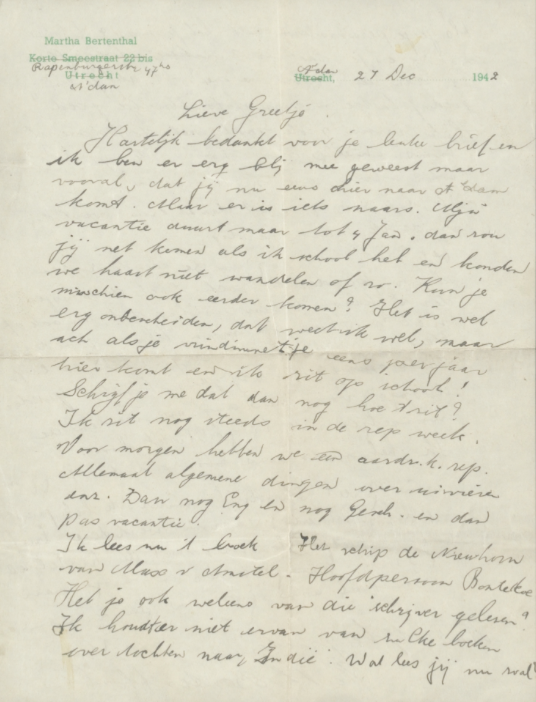 Martha Bertenthal
Korte Smeestraat 22 bis
Rapenburgerstr 47 hs
Utrecht
A'dam
A'dam
Utrecht, 27 Dec 1942
Lieve Greetje.
Hartelijk bedankt voor je leuke brief en
ik ben er erg blij mee geweest maar
vooral, dat jij nu eens hier naar A'dam
komt. Maar er is iets naars. Mijn
vacantie duurt maar tot 4 Jan. dan zou
jij net komen als ik school heb en konden
we haast niet wandelen of zo. Kun je
misschien ook eerder komen? Het is wel
erg onbescheiden, dat weet ik wel, maar
ach als je vriendinnetje eens per jaar
hier komt en ik zit op school!
Schrijf je me dat dan nog hoe 't zit?
Ik zit nog steeds in de rep week.
Voor morgen hebben we een aardr.k. rep.
Allemaal algemene dingen over rivieren
enz. Dan nog Eng en nog Gesch. en dan
pas vacantie.
Ik lees nu 't boek Het schip de Nieuwhorn
van Muss v Amstel. Hoofdpersoon Bontekoe
Heb je ook weleens van die schrijver gelezen?
Ik houd niet ervan van zulke boeken
over tochten naar Indië. Wat lees jij nu zoal